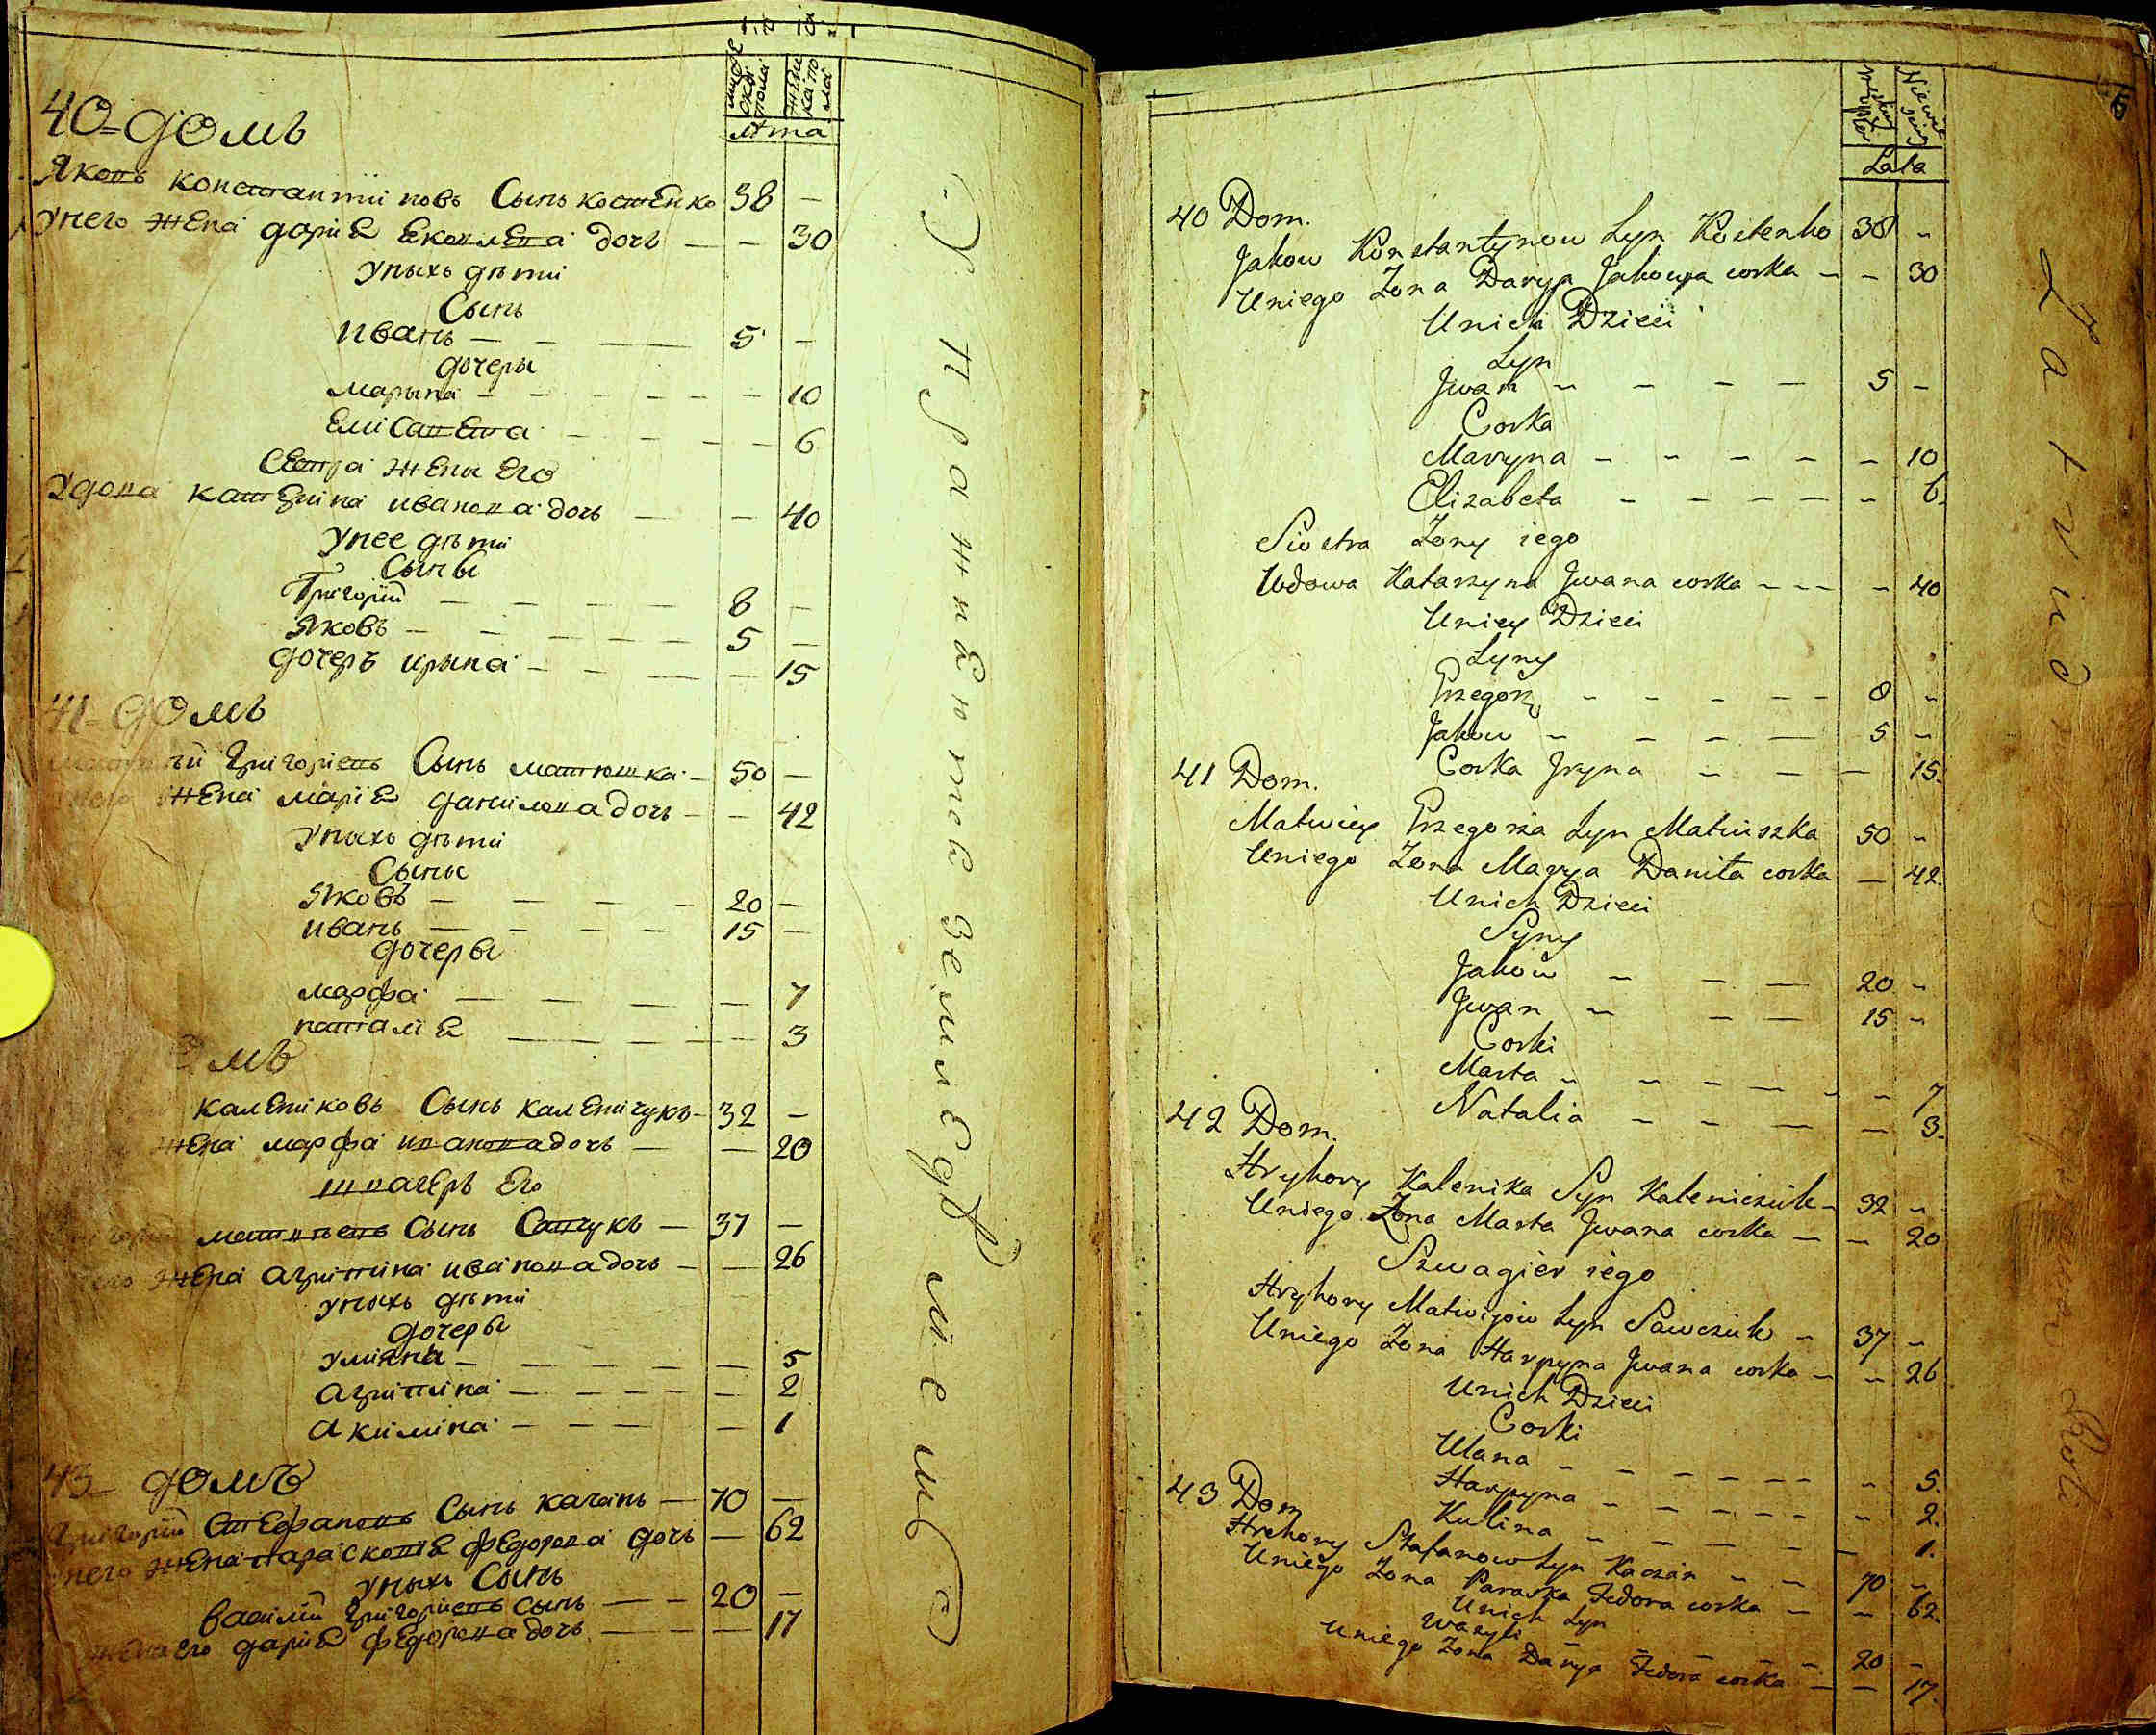 мужеска пола
женска пола
Лѣта
40 - домъ
Яковъ константиновъ Сынъ костенко 38 —
унего жена дарія яковлева дочь — — 30
уныхъ дѣти
Сынъ
иванъ — — — 5 —
дочеры
марына — — — — — 10
елисавета — — — — 6
сестра жены его
удова катерина иванова дочь — — 40
унее дѣти
Сыны
Григорій — — — — 8 —
Яковъ — — — — — 5 —
дочеръ ирына — — — — 15
41 - домъ
григоріевъ Сынъ матюшка — 50 —
жена марія данилова дочь — — 42
уныхъ дѣти
Сыны
Яковъ — — — — 20 —
иванъ — — — — 15 —
дочеры
марфа — — — — 7
наталія — — — — — 3
омъ
калениковъ Сынъ каленичукъ — 32 —
жена марфа иванова дочь — — 20
швагеръ его
матвѣевъ сынъ Савчукъ — 37 —
жена агрипина иванова дочь — — 26
уныхъ дѣти
дочеры
уліяна — — — — — 5
агрипина — — — — — 2
акилина — — — — 1
43 - домъ
Григорій Стефановъ Сынъ качанъ — 70 —
унего жена парасковія федорова дочь — 62
уныхъ Сынъ
василій григоріевъ сынъ — — 20 —
жена его дарія федорова дочь — — — 17
Упражняются въ земледѣліе
Męskiey
Niewie
Lata
40 Dom.
Jakow Konstantynow Syn Kostenko 38 -
Uniego Zona Darya Jakowa corka - - 30
Unich Dzieci
Syn
Jwan - - - - 5 -
Corka
Maryna - - - - - - 10
Elizabeta - - - - - 6.
Siostra Zony iego
Wdowa Katarzyna Jwana corka - - - - 40
Uniey Dzieci
Syny
Grzegorz - - - - - 8 -
Jakow - - - - 5 -
Corka Jryna - - - 15.
41 Dom.
Matwiey Grzegorza Syn Matiuszka 50 -
Uniego Zona Marya Daniła corka - 42.
Unich Dzieci
Syny
Jakow - - - 20 -
Jwan - - - 15 -
Corki
Marta - - - - - - 7
Natalia - - - - 3.
42 Dom.
Hryhory Kalenika Syn Kaleniczuk - 32 -
Uniego Zona Marta Jwana corka - - 20
Szwagier iego
Hryhory Matwijow Syn Sawczuk - 37 -
Uniego Zona Harpyna Jwana corka - - 26
Unich Dzieci
Corki
Ulana - - - - - - - 5.
Harpyna - - - - - - 2.
Kulina - - - - - - 1.
43 Dom
Hrehory Stefanow Syn Kaczan - - 70 -
Uniego Zona Paraska Fedora corka - - 62.
Unich Syn
Wasyli - - - - 20 -
Uniego Zona Darya Fedora corka - - 17.
Roli